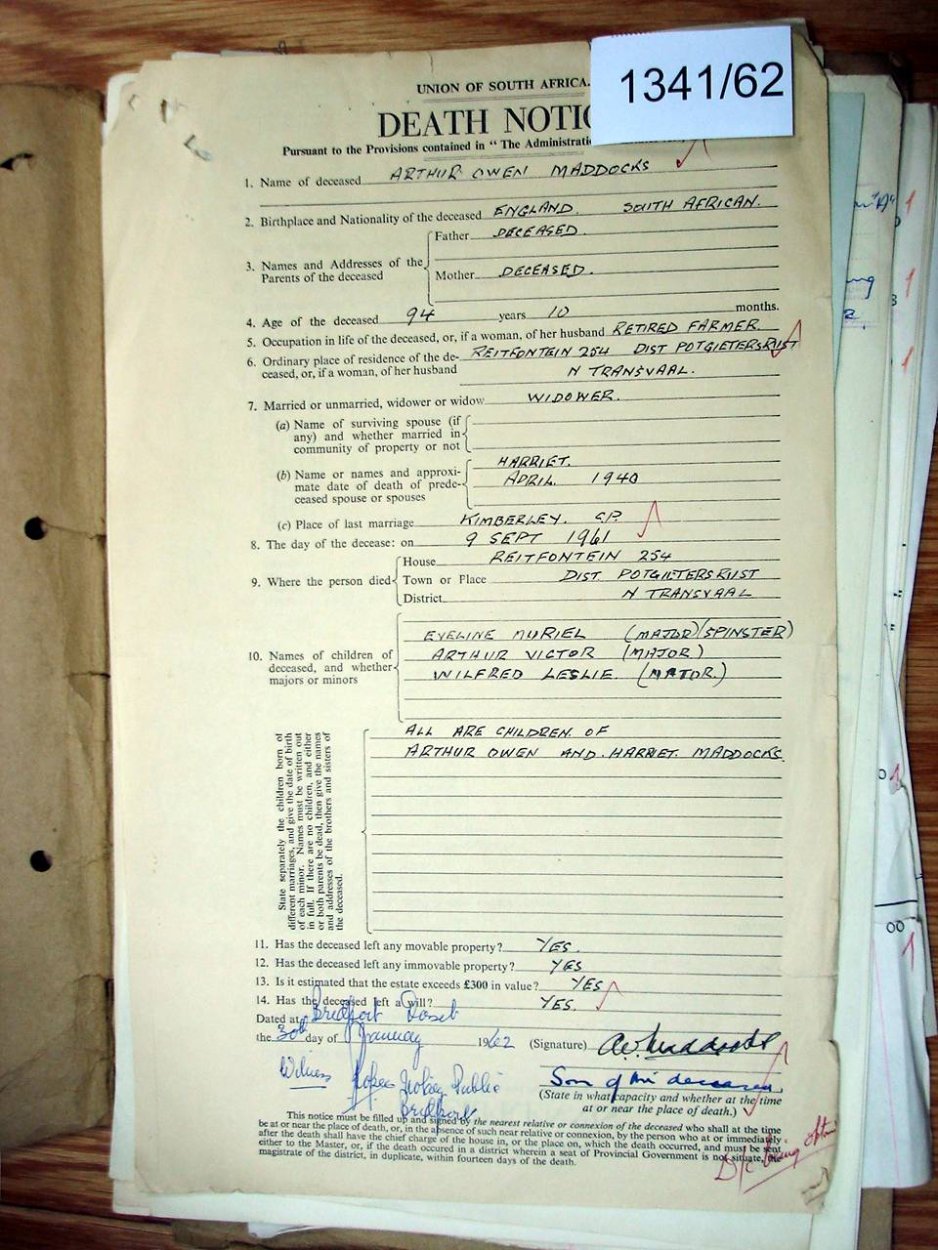 1341/62
UNION OF SOUTH AFRICA.
DEATH NOTIC
Pursuant to the Provisions contained in "The Administratio
1. Name of deceased ARTHUR OWEN MADDOCKS
2. Birthplace and Nationality of the deceased ENGLAND. SOUTH AFRICAN.
3. Names and Addresses of the Parents of the deceased
Father DECEASED.
Mother DECEASED.
4. Age of the deceased 94 years 10 months.
5. Occupation in life of the deceased, or, if a woman, of her husband RETIRED FARMER.
6. Ordinary place of residence of the de- REITFONTEIN 254 DIST POTGIETERSRUST
ceased, or, if a woman, of her husband N TRANSVAAL.
7. Married or unmarried, widower or widow WIDOWER.
(a) Name of surviving spouse (if
any) and whether married in
community of property or not
(b) Name or names and approxi- HARRIET.
mate date of death of prede- APRIL 1940
ceased spouse or spouses
(c) Place of last marriage KIMBERLEY. C.P.
8. The day of the decease: on 9 SEPT 1961
9. Where the person died
House REITFONTEIN 254
Town or Place DIST. POTGIETERSRUST
District N TRANSVAAL
10. Names of children of
deceased, and whether
majors or minors
EVELINE MURIEL (MAJOR) (SPINSTER)
ARTHUR VICTOR (MAJOR)
WILFRED LESLIE. (MAJOR.)
State separately the children born of
different marriages, and give the date of birth
of each minor. Names must be written out
in full. If there are no children, and either
or both parents be dead, then give the names
and addresses of the brothers and sisters of
the deceased.
ALL ARE CHILDREN OF
ARTHUR OWEN AND HARRIET MADDOCKS.
11. Has the deceased left any movable property? YES.
12. Has the deceased left any immovable property? YES
13. Is it estimated that the estate exceeds £300 in value? YES
14. Has the deceased left a will? YES.
Dated at Bridport Dorset
the 30th day of January 1962 (Signature) A.V. Maddocks
Witness Notary Public
Bridport
Son of the deceased.
(State in what capacity and whether at the time
at or near the place of death.)
This notice must be filled up and signed by the nearest relative or connexion of the deceased who shall at the time
be at or near the place of death, or, in the absence of such near relative or connexion, by the person who at or immediately
after the death shall have the chief charge of the house in, or the place on, which the death occurred, and must be sent
either to the Master, or, if the death occurred in a district wherein a seat of Provincial Government is not situate, the
magistrate of the district, in duplicate, within fourteen days of the death.